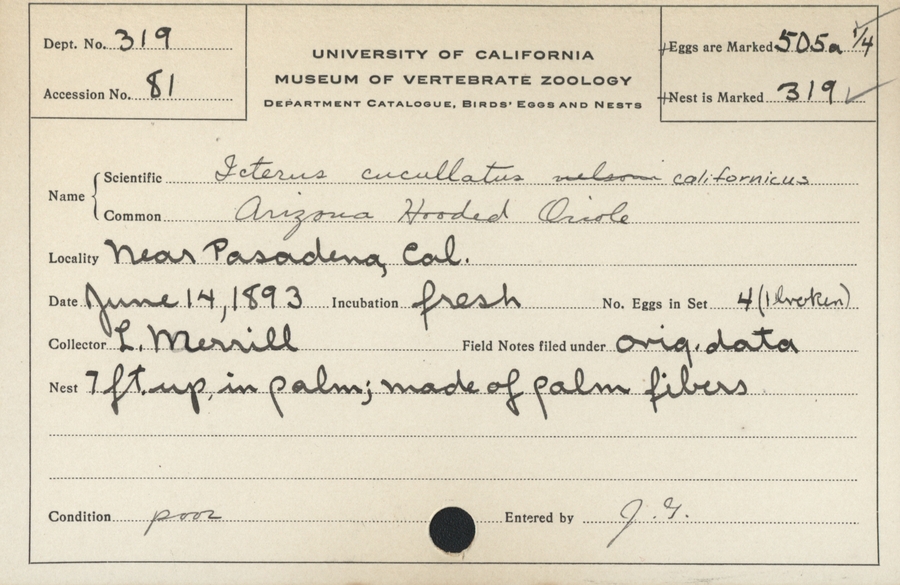 Dept. No. 319
Accession No. 81
UNIVERSITY OF CALIFORNIA
MUSEUM OF VERTEBRATE ZOOLOGY
DEPARTMENT CATALOGUE, BIRDS' EGGS AND NESTS
Eggs are Marked 505a 1/4
Nest is Marked 319 ✓
Name
Scientific Icterus cucullatus nelsoni californicus
Common Arizona Hooded Oriole
Locality Near Pasadena, Cal.
Date June 14, 1893 Incubation fresh No. Eggs in Set 4 (1 broken)
Collector L. Merrill Field Notes filed under orig. data
Nest 7 ft. up, in palm; made of palm fibers
Condition poor Entered by J. G.